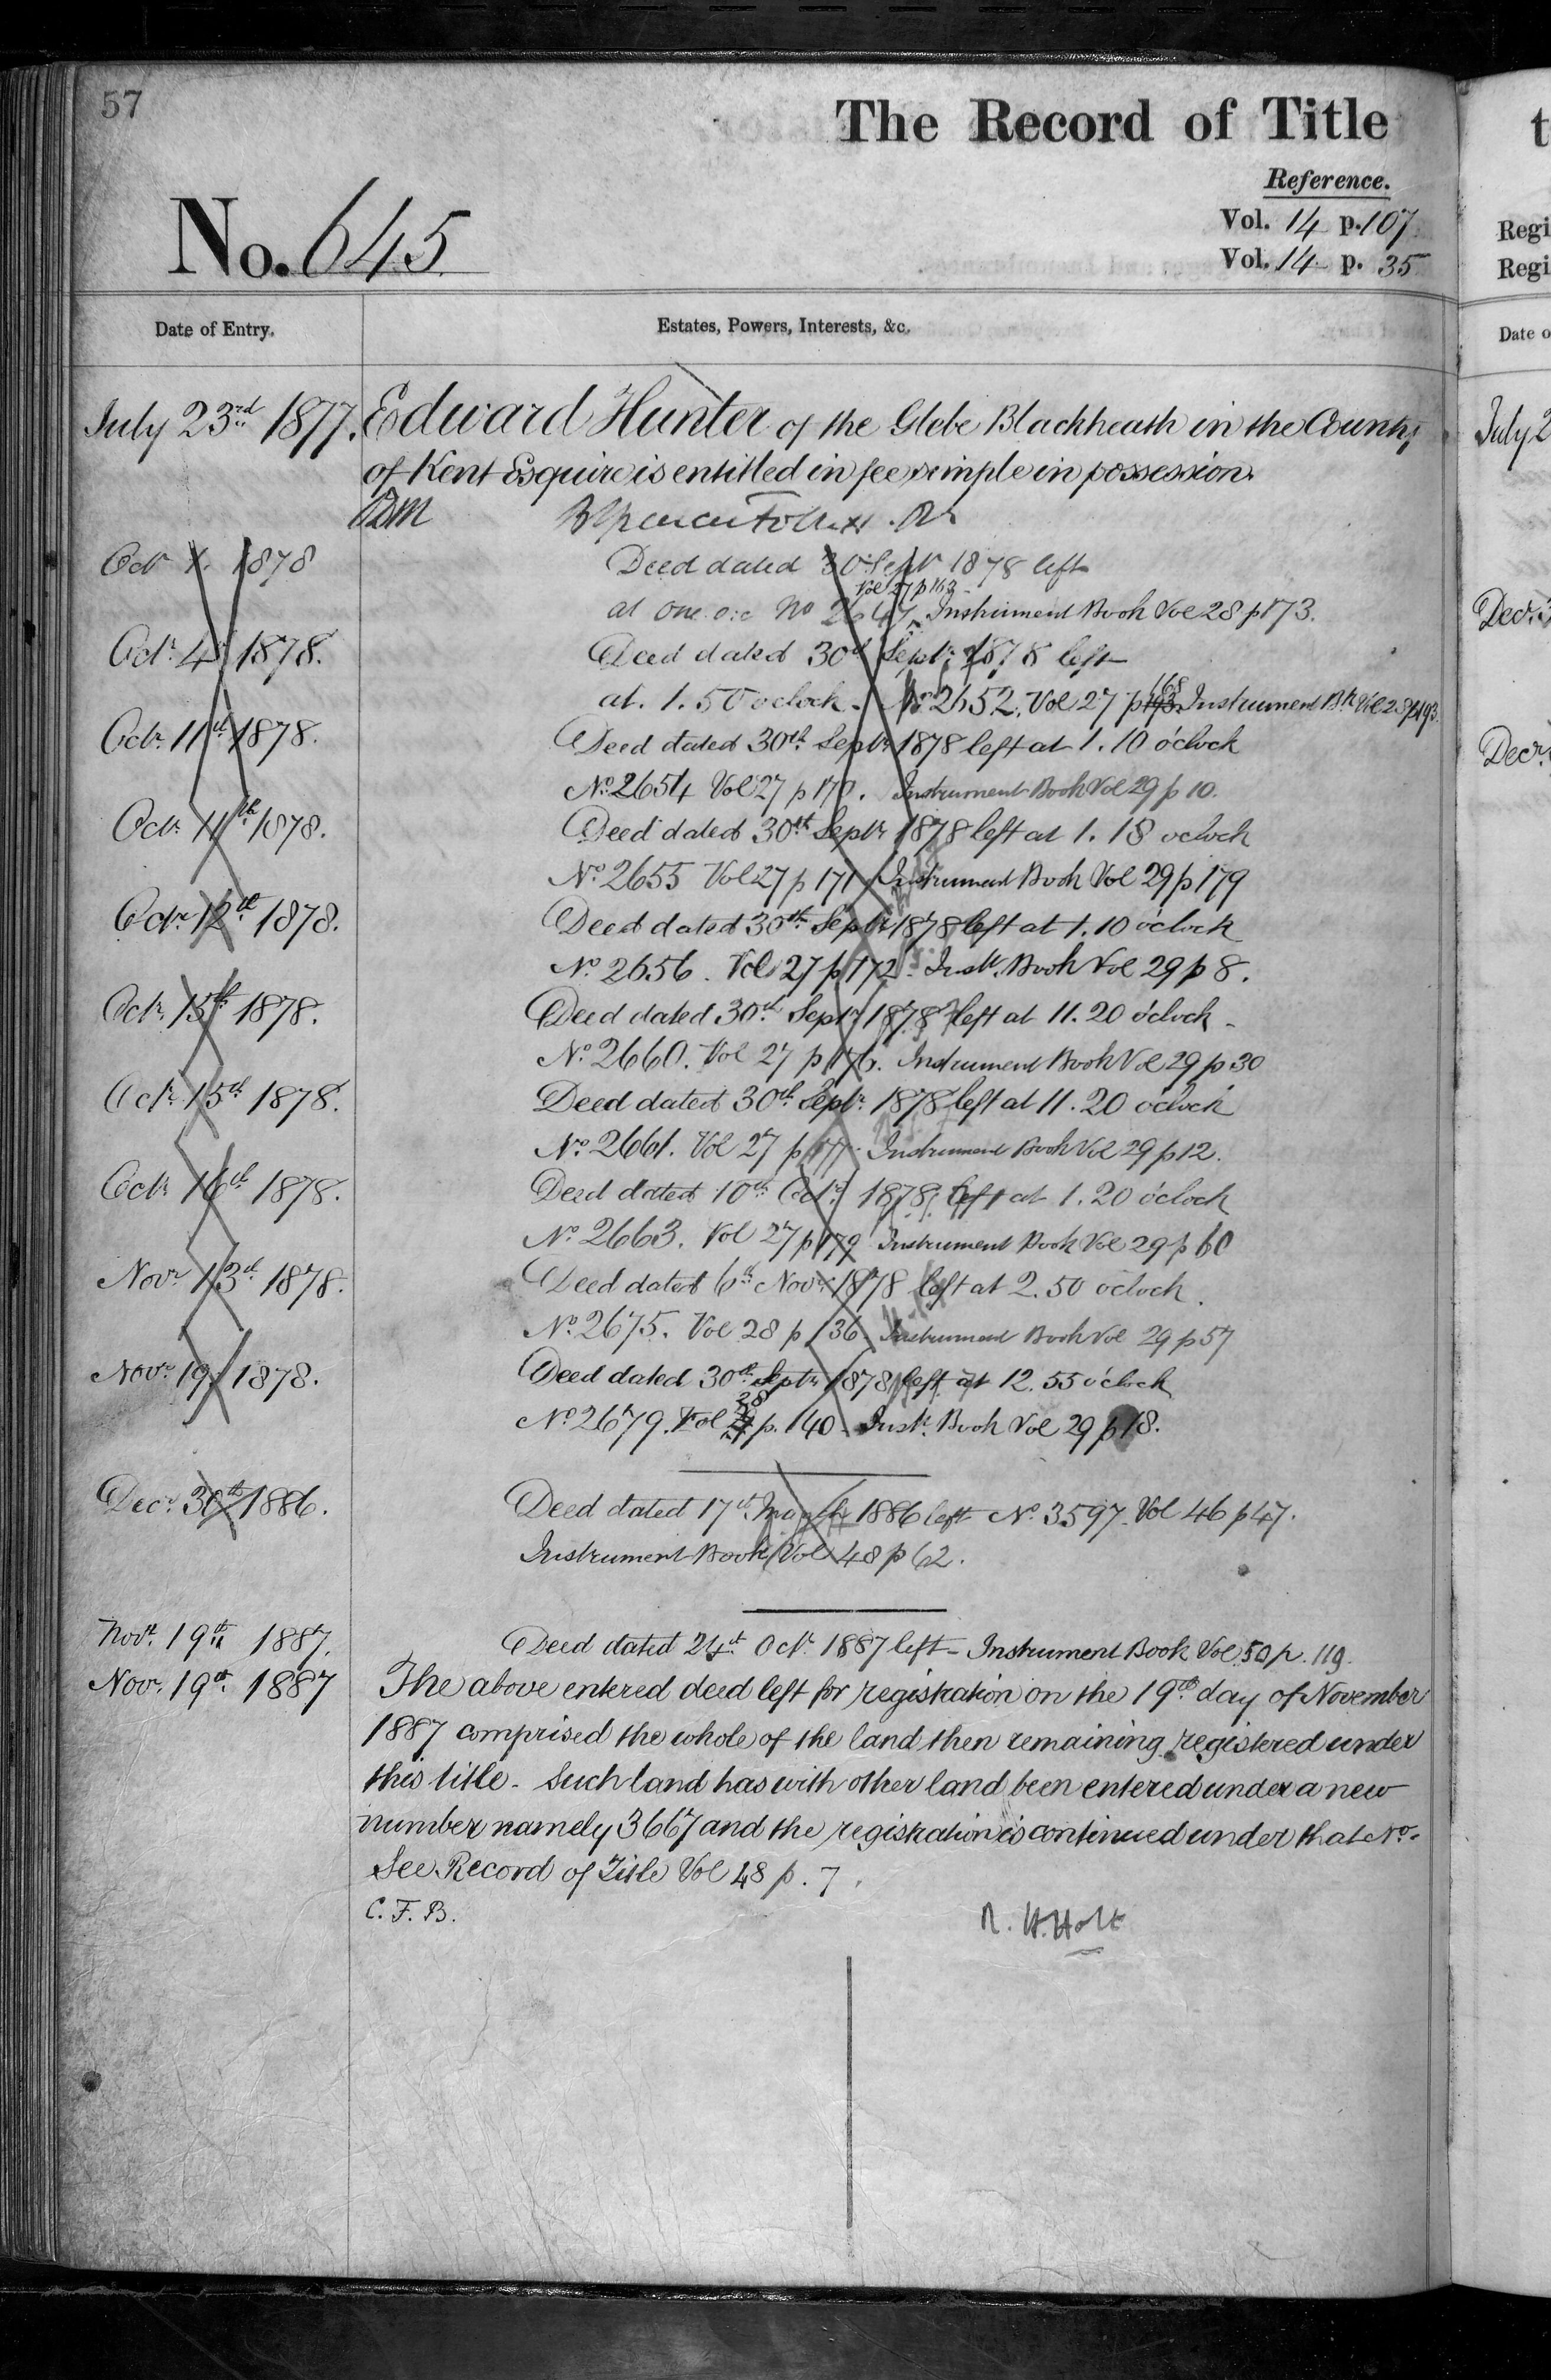 57
The Record of Title
Reference.
No. 645
Vol. 14 p. 107
Vol. 14 p. 35
Date of Entry.
Estates, Powers, Interests, &c.
July 23rd 1877. Edward Hunter of the Glebe Blackheath in the County
of Kent Esquire is entitled in fee simple in possession.
Octr 1. 1878 Deed dated 30 Septr 1878 left
Vol 27 p 163
at one o.c No 2647 Instrument Book Vol 28 p 173.
Octr. 4th 1878. Deed dated 30th Septr. 1878 left
168
at 1.50 o'clock. No 2652. Vol 27 p 193 Instrument Bk Vol 28 p 193.
Octr. 11th 1878. Deed dated 30th Septr 1878 left at 1.10 o'clock
No. 2654 Vol 27 p 170. Instrument Book Vol 29 p 10.
Octr. 11th 1878. Deed dated 30th Septr 1878 left at 1.18 oclock
No. 2655 Vol 27 p 171 Instrument Book Vol 29 p 179
Octr. 12th 1878. Deed dated 30th Septr 1878 left at 1.10 o'clock
No. 2656. Vol 27 p 172. Instt. Book Vol 29 p 8.
Octr. 15th 1878. Deed dated 30th Septr 1878 left at 11.20 o'clock.
No. 2660. Vol 27 p 176. Instrument Book Vol 29 p 30
Octr. 15th 1878. Deed dated 30th Septr. 1878 left at 11.20 o'clock
No. 2661. Vol 27 p 177. Instrument Book Vol 29 p 12.
Octr 16th 1878. Deed dated 10th Octr. 1878 left at 1.20 o'clock
No. 2663. Vol 27 p 179 Instrument Book Vol 29 p 60
Novr 13th 1878. Deed dated 6th Novr. 1878 left at 2.50 o'clock.
No. 2675. Vol 28 p 136. Instrument Book Vol 29 p 57
Novr. 19 1878. Deed dated 30th Septr 1878 left at 12.55 o'clock
28
No. 2679. Vol p. 140. Instt. Book Vol 29 p 18.
Decr. 30th 1886. Deed dated 17th March 1886 left No. 3597. Vol 46 p 47.
Instrument Book Vol 48 p 62.
Novr. 19th 1887. Deed dated 24th Octr. 1887 left - Instrument Book Vol 50 p. 119.
Nov. 19th 1887 The above entered deed left for registration on the 19th day of November
1887 comprised the whole of the land then remaining registered under
this title. Such land has with other land been entered under a new
number namely 3667 and the registration is continued under that No.
See Record of Title Vol 48 p. 7.
C. F. B.
R. H. Holt
t
Regi
Regi
Date o
July 2
Decr. 3
Decr.